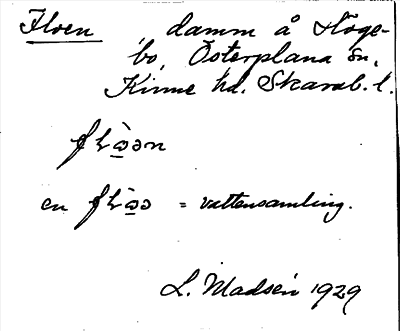 Floen, damm å Höge-
bo, Österplana sn,
Kinne hd. Skarab. l.
en = vattensamling.
L. Madsén 1929